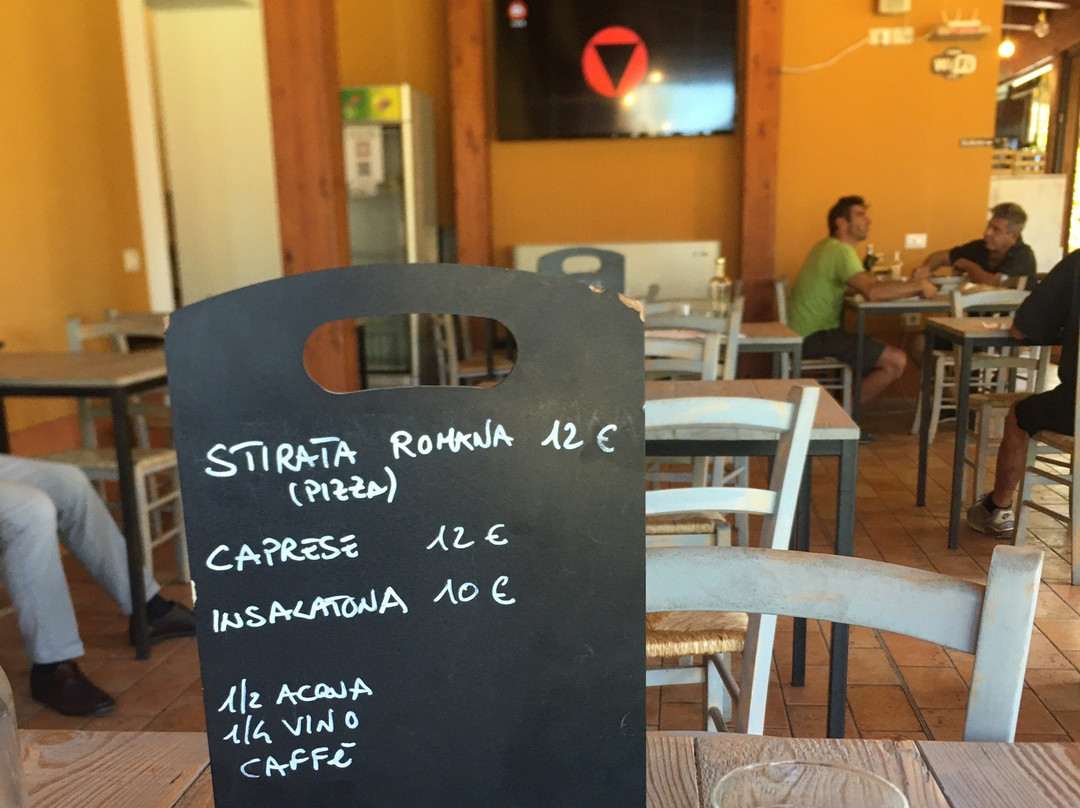 STIRATA ROMANA 12 €
(PIZZA)
CAPRESE 12 €
INSALATONA 10 €
1/2 ACQUA
1/4 VINO
CAFFÈ